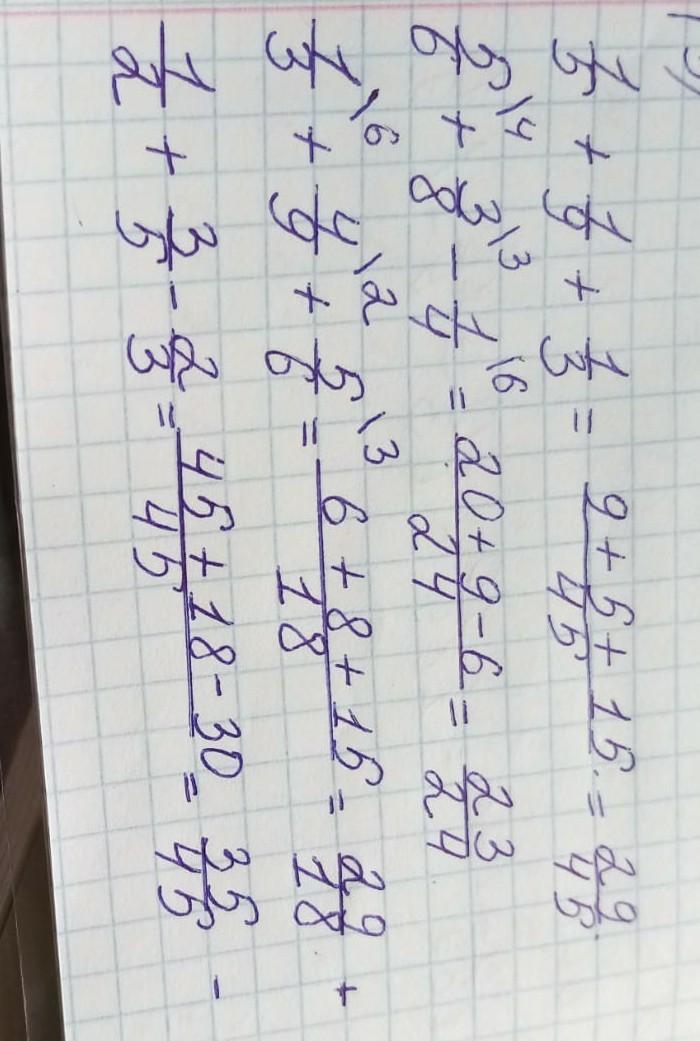 1/5 + 1/9 + 1/3 = (9 + 5 + 15)/45 = 29/45
5/6\4 + 3/8\3 - 1/4\6 = (20 + 9 - 6)/24 = 23/24
1/3\6 + 4/9\2 + 5/6\3 = (6 + 8 + 15)/18 = 29/18 +
1/2 + 3/5 - 2/3 = (45 + 18 - 30)/45 = 35/45 -